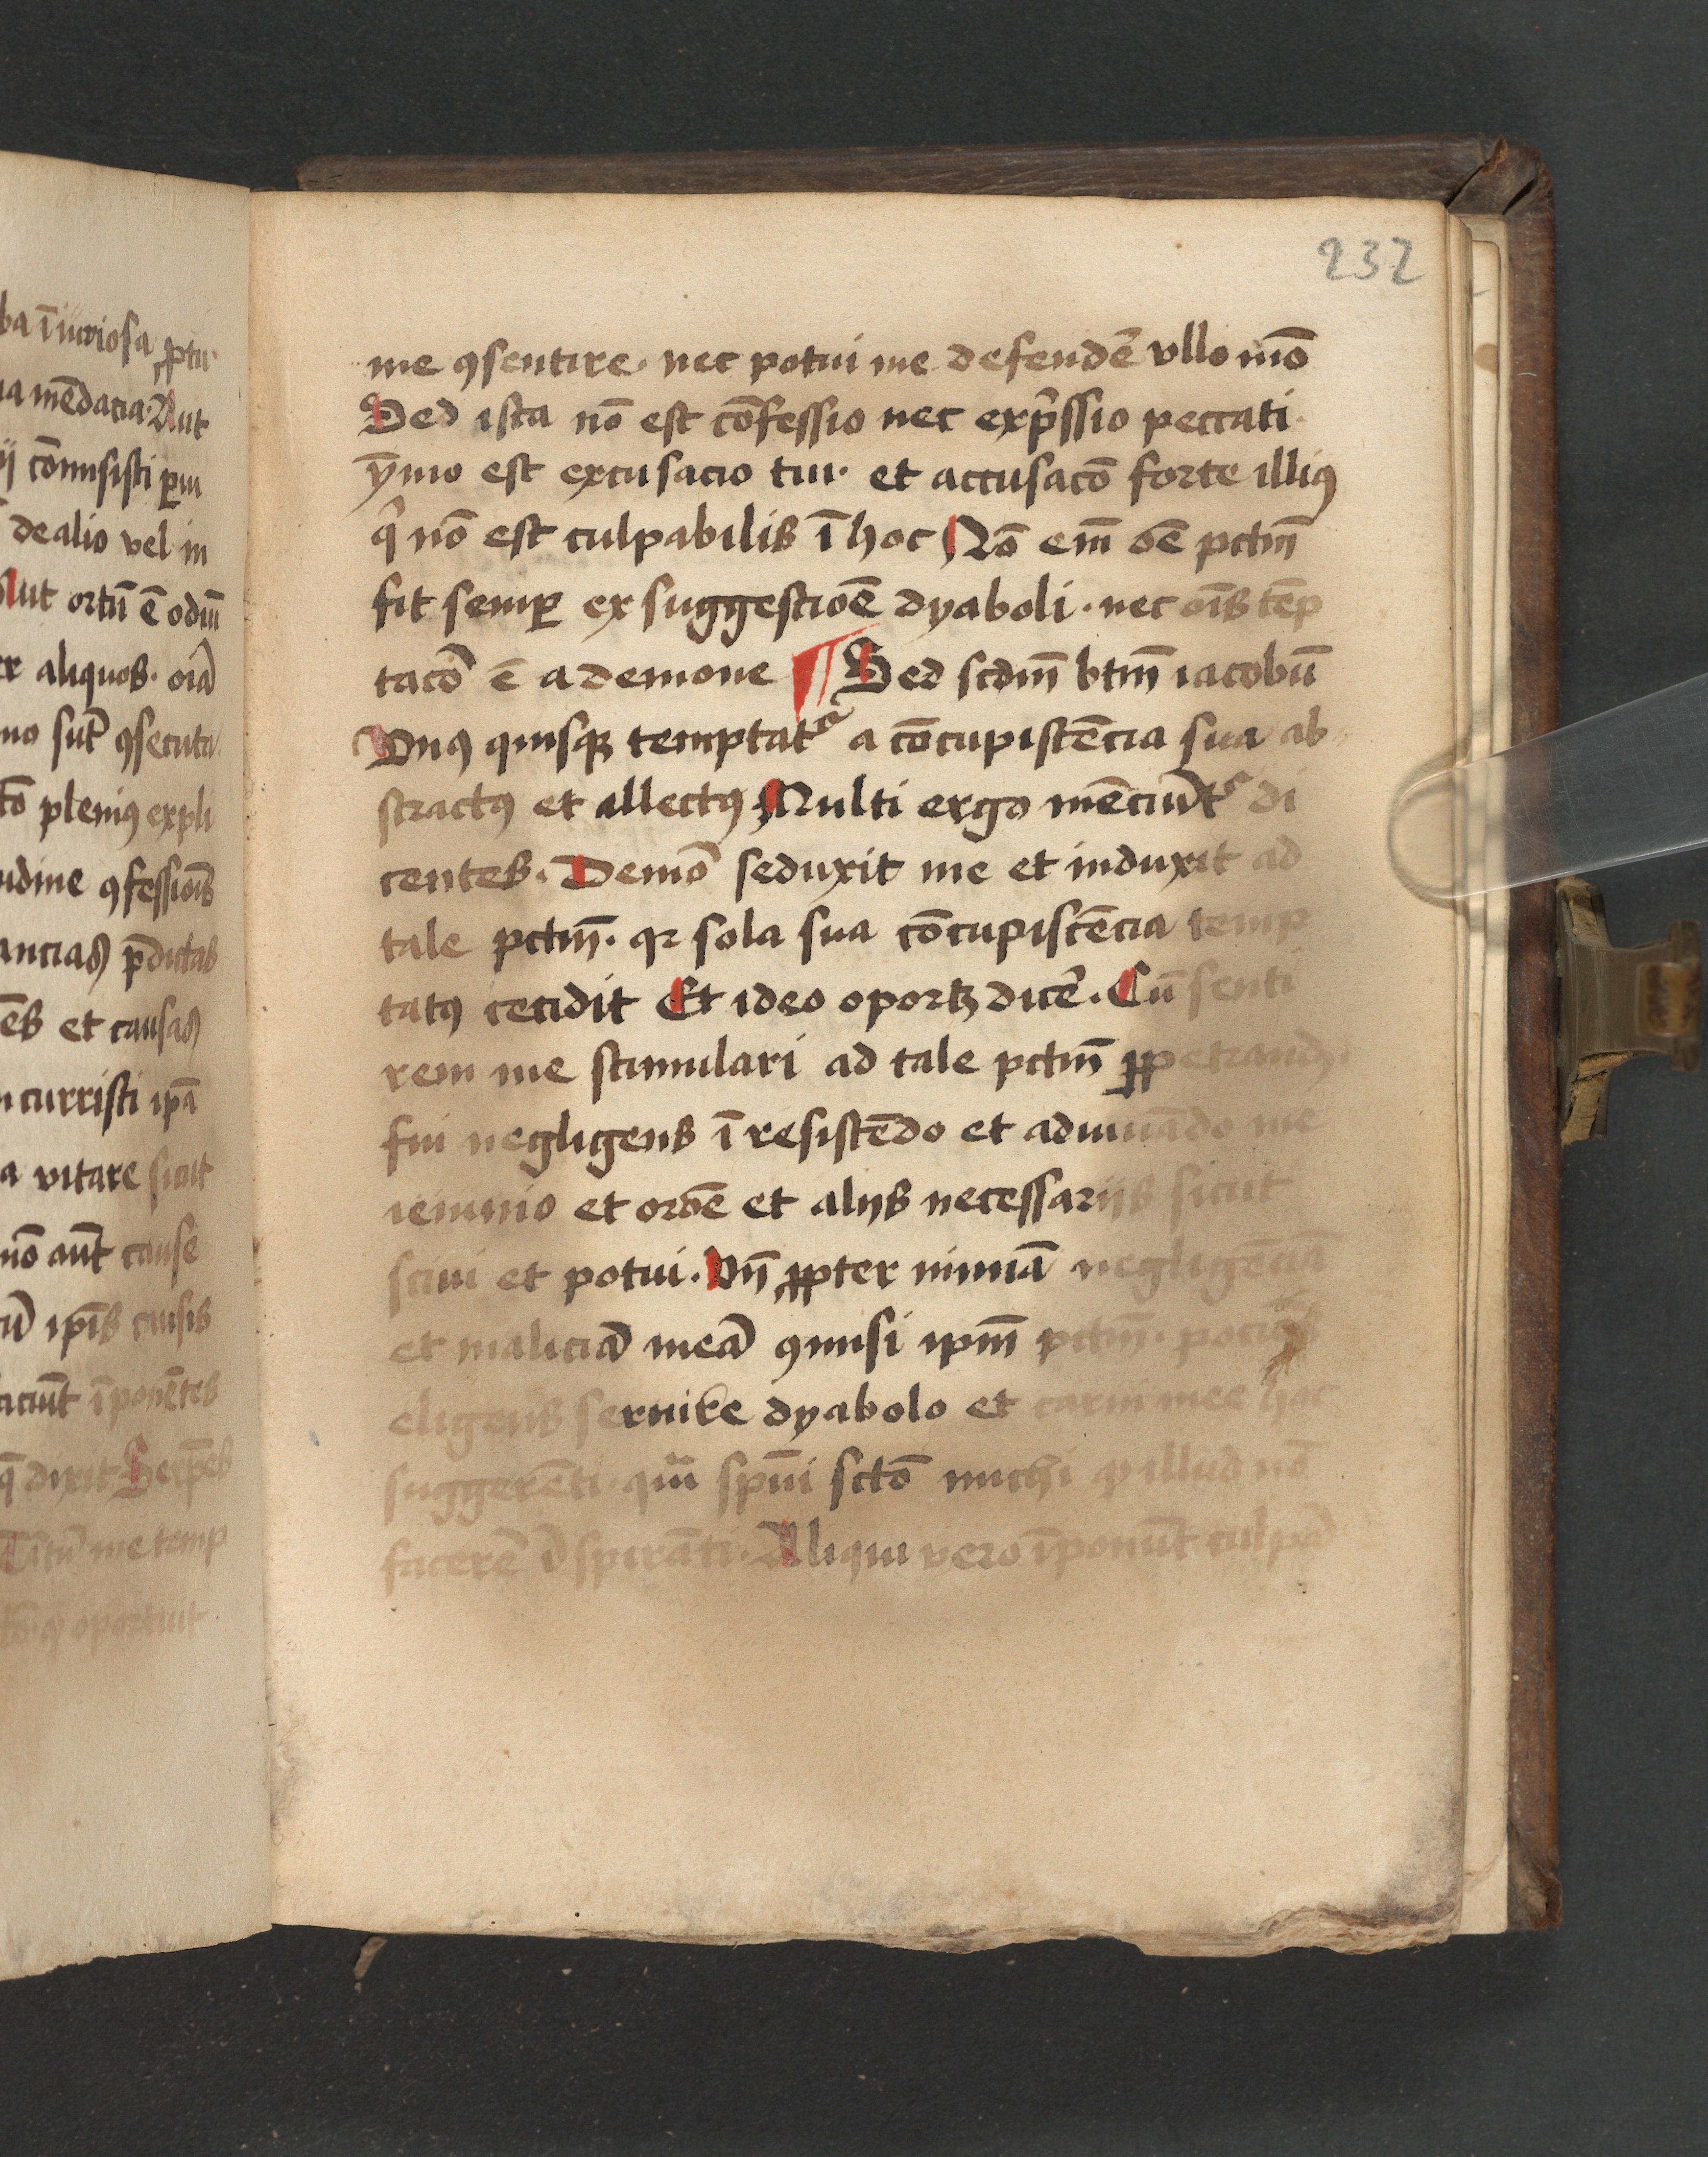 ba īiuriosa ꝓptu
ua mēdacia. Aut
ij cōmisisti ꝑiu
de alio vel in
Aut ortū ē odiū
er aliquos. oīa
mo sūt ꝯsecuta
tō pleniꝰ expli
udine ꝯfessiōis
ancias p̄dictas
ēs et causas
curristi ipā
a vitare sicut
nō aūt cause
ipīs
ciūt īponētes
q̄ dixit Serpēs
me temp
oportuit
232
me ꝯsentire. nec potui me defendē vllo mō
Sed ista nō est cōfessio nec exp̄ssio peccati.
ȳmo est excusacio tui. et accusacō forte illiꝰ
qͥ nō est culpabilis ī hoc Nō em̄ oē pctm̄
fit semꝑ ex suggestiōe dyaboli. nec oīs tēp
tacō ē a demone ¶ Sed scdm̄ btm̄ iacobū
Vnꝰ quisqꝫ temptatᷣ a cōcupiscēcia sua ab
stractꝰ et allectꝰ Multi ergo mēciūtᷣ di
centes. Demō seduxit me et induxit ad
tale pctm̄. qꝛ sola sua cōcupiscēcia temp
tatꝰ cecidit Et ideo oportꝫ dicē. Cū senti
rem me stimulari ad tale pctm̄ ꝑpetrand
fui negligens ī resistēdo et adiuuādo me
ieiunio et orōe et alijs necessarijs sicut
sciui et potui. Vn̄ ꝓpter nimiā negligēciā
et maliciā meā ꝯmisi ipm̄ pctm̄. pociꝰ
eligens seruire dyabolo et carni mee hoc
suggerēti. qm̄ spūi sctō michi ꝙ illud nō
facerē īspirāti. Aliqui vero īponūt culpā